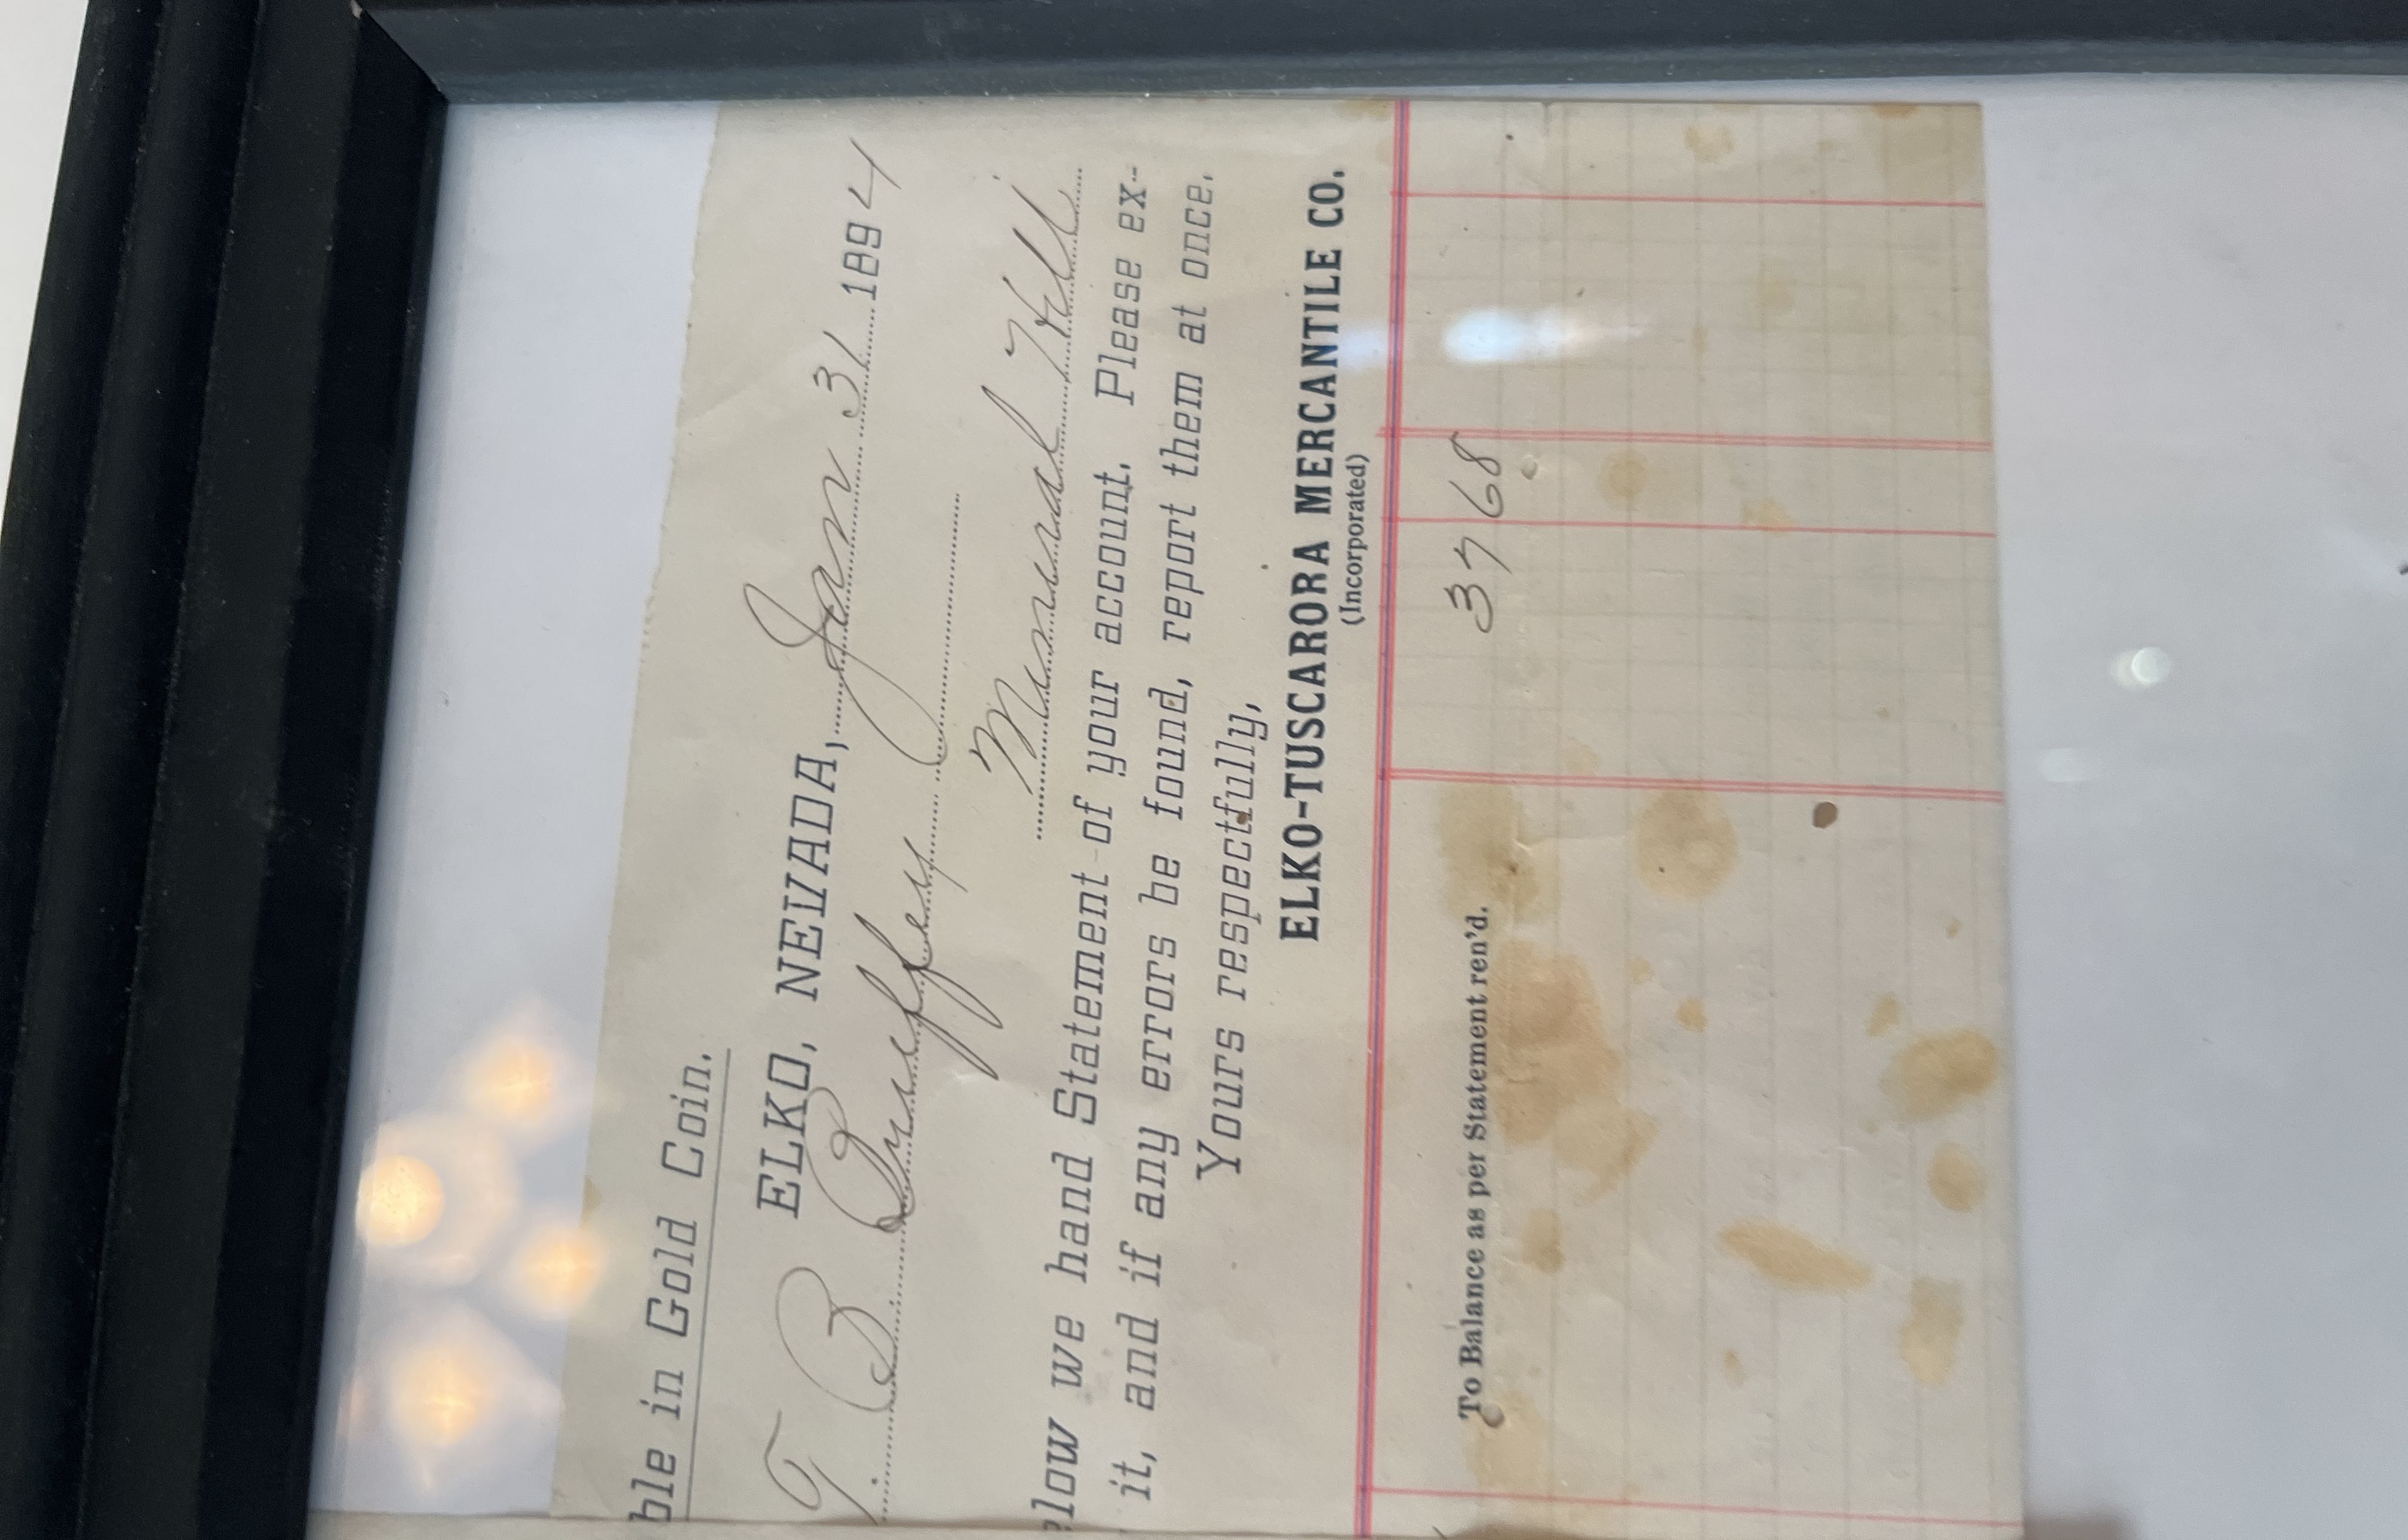 ble in Gold Coin.
ELKO, NEVADA, Jan 31 1894
T. B. Duffey
Mineral Hill
elow we hand Statement of your account. Please ex-
it, and if any errors be found, report them at once.
Yours respectfully,
ELKO-TUSCARORA MERCANTILE CO.
(Incorporated)
To Balance as per Statement ren'd. 37 68